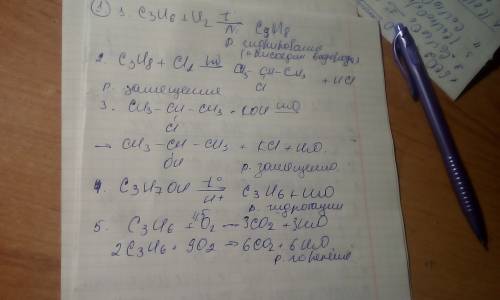 ① 1. C3H6 + H2 t/Ni C3H8
р. гидрирования
(+ присоедин водорода)
2. C3H8 + Cl2 hν CH3-CH-CH3 + HCl
Cl
р. замещения
3. CH3-CH-CH3 + KOH H2O
Cl
→ CH3-CH-CH3 + KCl + H2O
OH
р. замещение
4. C3H7OH t° H+ C3H6 + H2O
р. гидротации
5. C3H6 + 4,5 O2 → 3CO2 + 3H2O
2C3H6 + 9O2 → 6CO2 + 6H2O
р. горение